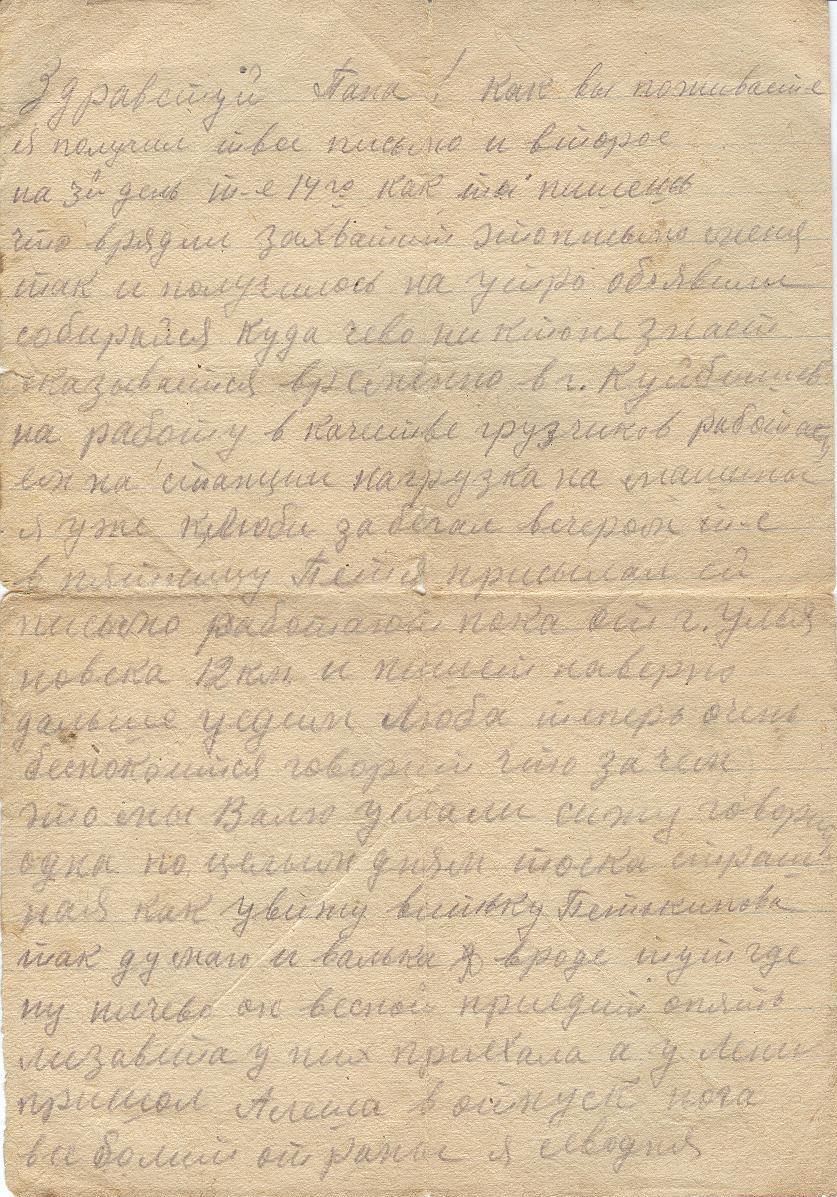 Здравствуй Папа! Как вы поживаете
я получил твое письмо и второе
на 3й день т-е 14го как ты пишешь
что врядли захватит это письмо меня
так и получилось на утро обявили
собирайся куда чево никто не знает
оказывается временно в г. Куйбышев
на работу в качестве грузчиков работаем
на станции нагрузка на машины
я уже к Любе забегал вечером т-е
в пятницу Петя присылал ей
письмо работают пока от г. Улья
новска 12 км и пишет наверно
дальше уедим Люба теперь очень
беспокоится говорит что зачем
это мы Валю услали сижу говорит
одна по целым дням тоска страш
ная как увижу витюку Петькинова
так думаю и валька вроде тут где
ну ничево он весной приедит опять
лизавита у них приехала а у Лени
пришол Алеша в отпуск нога
все болит от раны я севодня